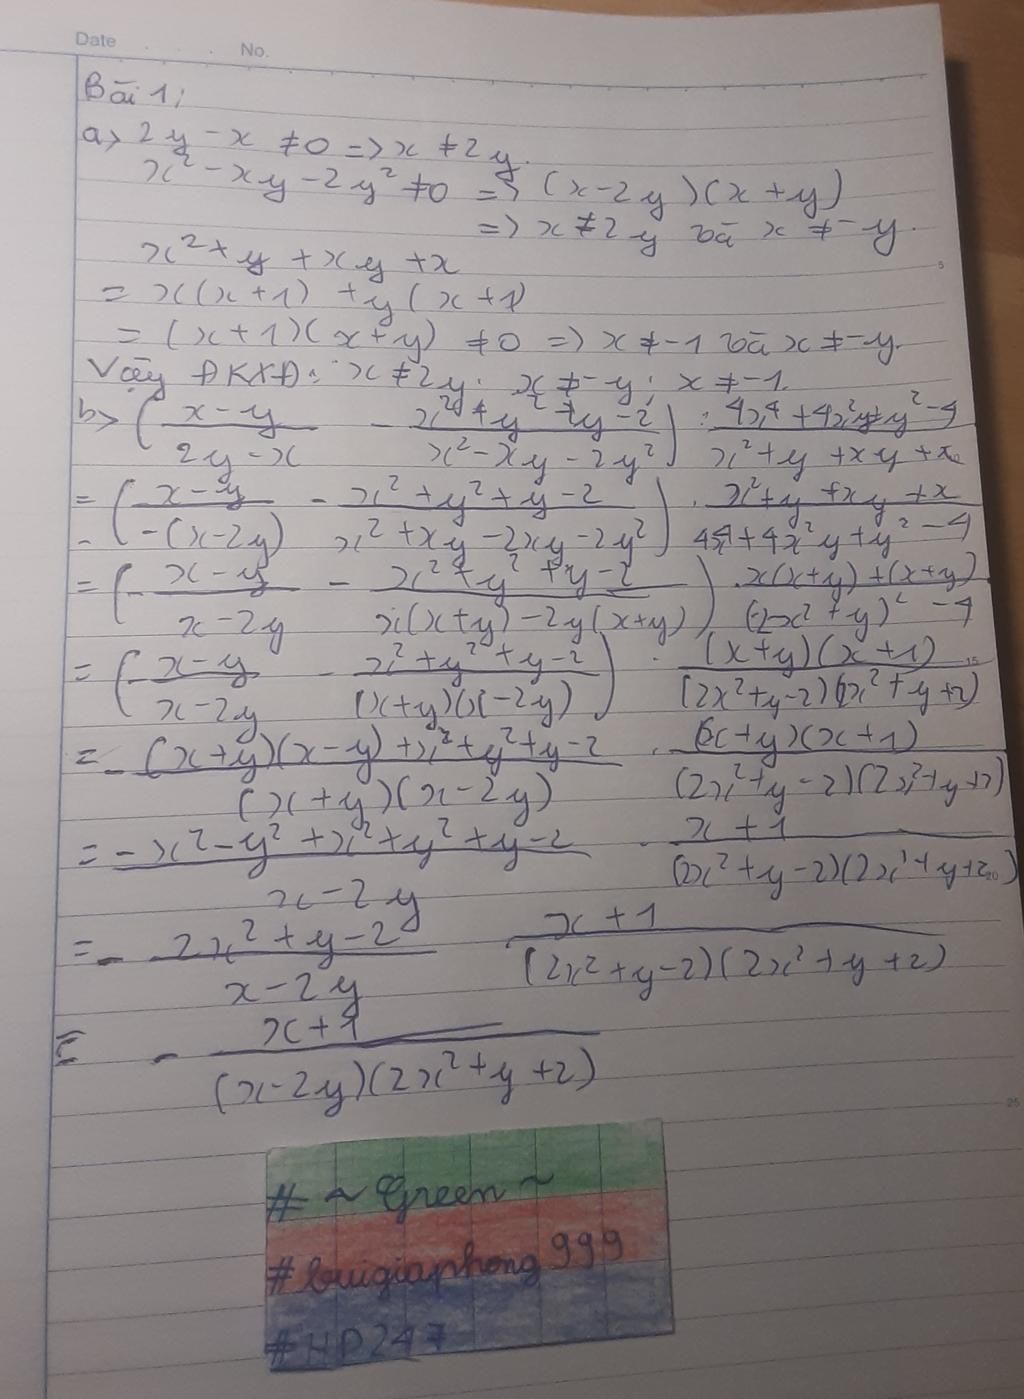 Date No.
Bài 1:
a> 2y - x ≠ 0 => x ≠ 2y.
x² - xy - 2y² ≠ 0 => (x-2y)(x+y)
=> x ≠ 2y và x ≠ -y.
x² + y + xy + x
= x(x+1) + y(x+1)
= (x+1)(x+y) ≠ 0 => x ≠ -1 và x ≠ -y.
Vậy ĐKXĐ: x ≠ 2y; x ≠ -y; x ≠ -1.
b> ((x-y)/(2y-x) - (x²+y²+y-2)/(x²-xy-2y²)) : (4x⁴+4x²y+y²-4)/(x²+y+xy+x)
= ((x-y)/(-(x-2y)) - (x²+y²+y-2)/(x²+xy-2xy-2y²)) . (x²+y+xy+x)/(4x⁴+4x²y+y²-4)
= (-(x-y)/(x-2y) - (x²+y²+y-2)/(x(x+y)-2y(x+y))) . (x(x+y)+(x+y))/((2x²+y)²-4)
= (-(x-y)/(x-2y) - (x²+y²+y-2)/((x+y)(x-2y))) . ((x+y)(x+1))/((2x²+y-2)(2x²+y+2))
= - ((x+y)(x-y)+x²+y²+y-2)/((x+y)(x-2y)) . ((x+y)(x+1))/((2x²+y-2)(2x²+y+2))
= - (x²-y²+x²+y²+y-2)/(x-2y) . (x+1)/((2x²+y-2)(2x²+y+2))
= - (2x²+y-2)/(x-2y) (x+1)/((2x²+y-2)(2x²+y+2))
= - (x+1)/((x-2y)(2x²+y+2))
# ~ Green ~
# buigiaphong 999
# HP247
5
15
20
25